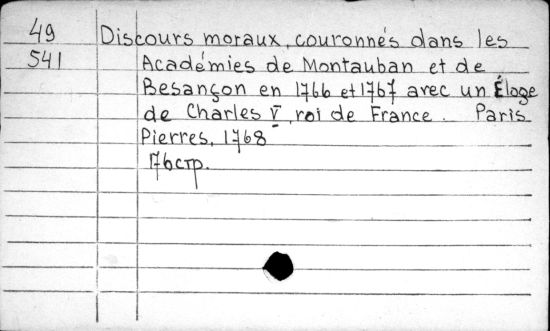 49 Discours moraux, couronnés dans les
541 Académies de Montauban et de
Besançon en 1766 et 1767 avec un Éloge
de Charles V, roi de France. Paris
Pierres, 1768
76 стр.